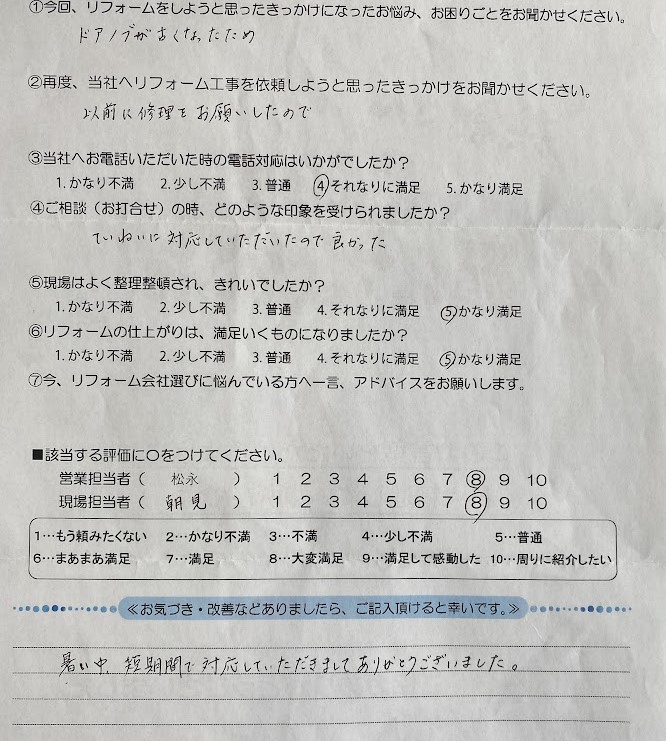 ①今回、リフォームをしようと思ったきっかけになったお悩み、お困りごとをお聞かせください。
ドアノブが古くなったため
②再度、当社へリフォーム工事を依頼しようと思ったきっかけをお聞かせください。
以前に修理をお願いしたので
③当社へお電話いただいた時の電話対応はいかがでしたか？
1.かなり不満 2.少し不満 3.普通 4.それなりに満足 5.かなり満足
④ご相談（お打合せ）の時、どのような印象を受けられましたか？
ていねいに対応していただいたので良かった
⑤現場はよく整理整頓され、きれいでしたか？
1.かなり不満 2.少し不満 3.普通 4.それなりに満足 5.かなり満足
⑥リフォームの仕上がりは、満足いくものになりましたか？
1.かなり不満 2.少し不満 3.普通 4.それなりに満足 5.かなり満足
⑦今、リフォーム会社選びに悩んでいる方へ一言、アドバイスをお願いします。
■該当する評価に〇をつけてください。
営業担当者（ 松永 ） 1 2 3 4 5 6 7 8 9 10
現場担当者（ 朝見 ） 1 2 3 4 5 6 7 8 9 10
1…もう頼みたくない 2…かなり不満 3…不満 4…少し不満 5…普通
6…まあまあ満足 7…満足 8…大変満足 9…満足して感動した 10…周りに紹介したい
≪お気づき・改善などありましたら、ご記入頂けると幸いです。≫
暑い中、短期間で対応していただきましてありがとうございました。